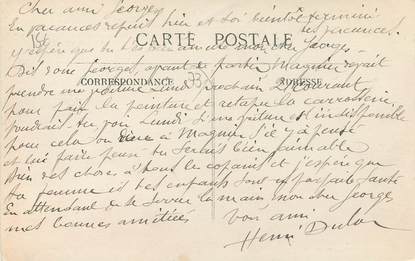 Cher ami Georges
En vacances depuis hier et toi bientôt terminé
tes vacances.
J'espère que tu mon cher Georges.
CARTE POSTALE
CORRESPONDANCE
ADRESSE
73
Dis donc Georges, avant de partir Magnier devait
prendre une voiture Lundi prochain 21 courant
pour faire la peinture et retaper la carrosserie.
Voudrais-tu voir Lundi si une voiture est indisponible
pour cela ou dire à Magnier s'il y a pensé
et lui faire penser tu serais bien aimable
Bien des choses à tous les copains et j'espère que
ta femme et tes enfants sont en parfaite santé
En attendant de te serrer la main mon cher Georges
mes bonnes amitiés
ton ami
Henri